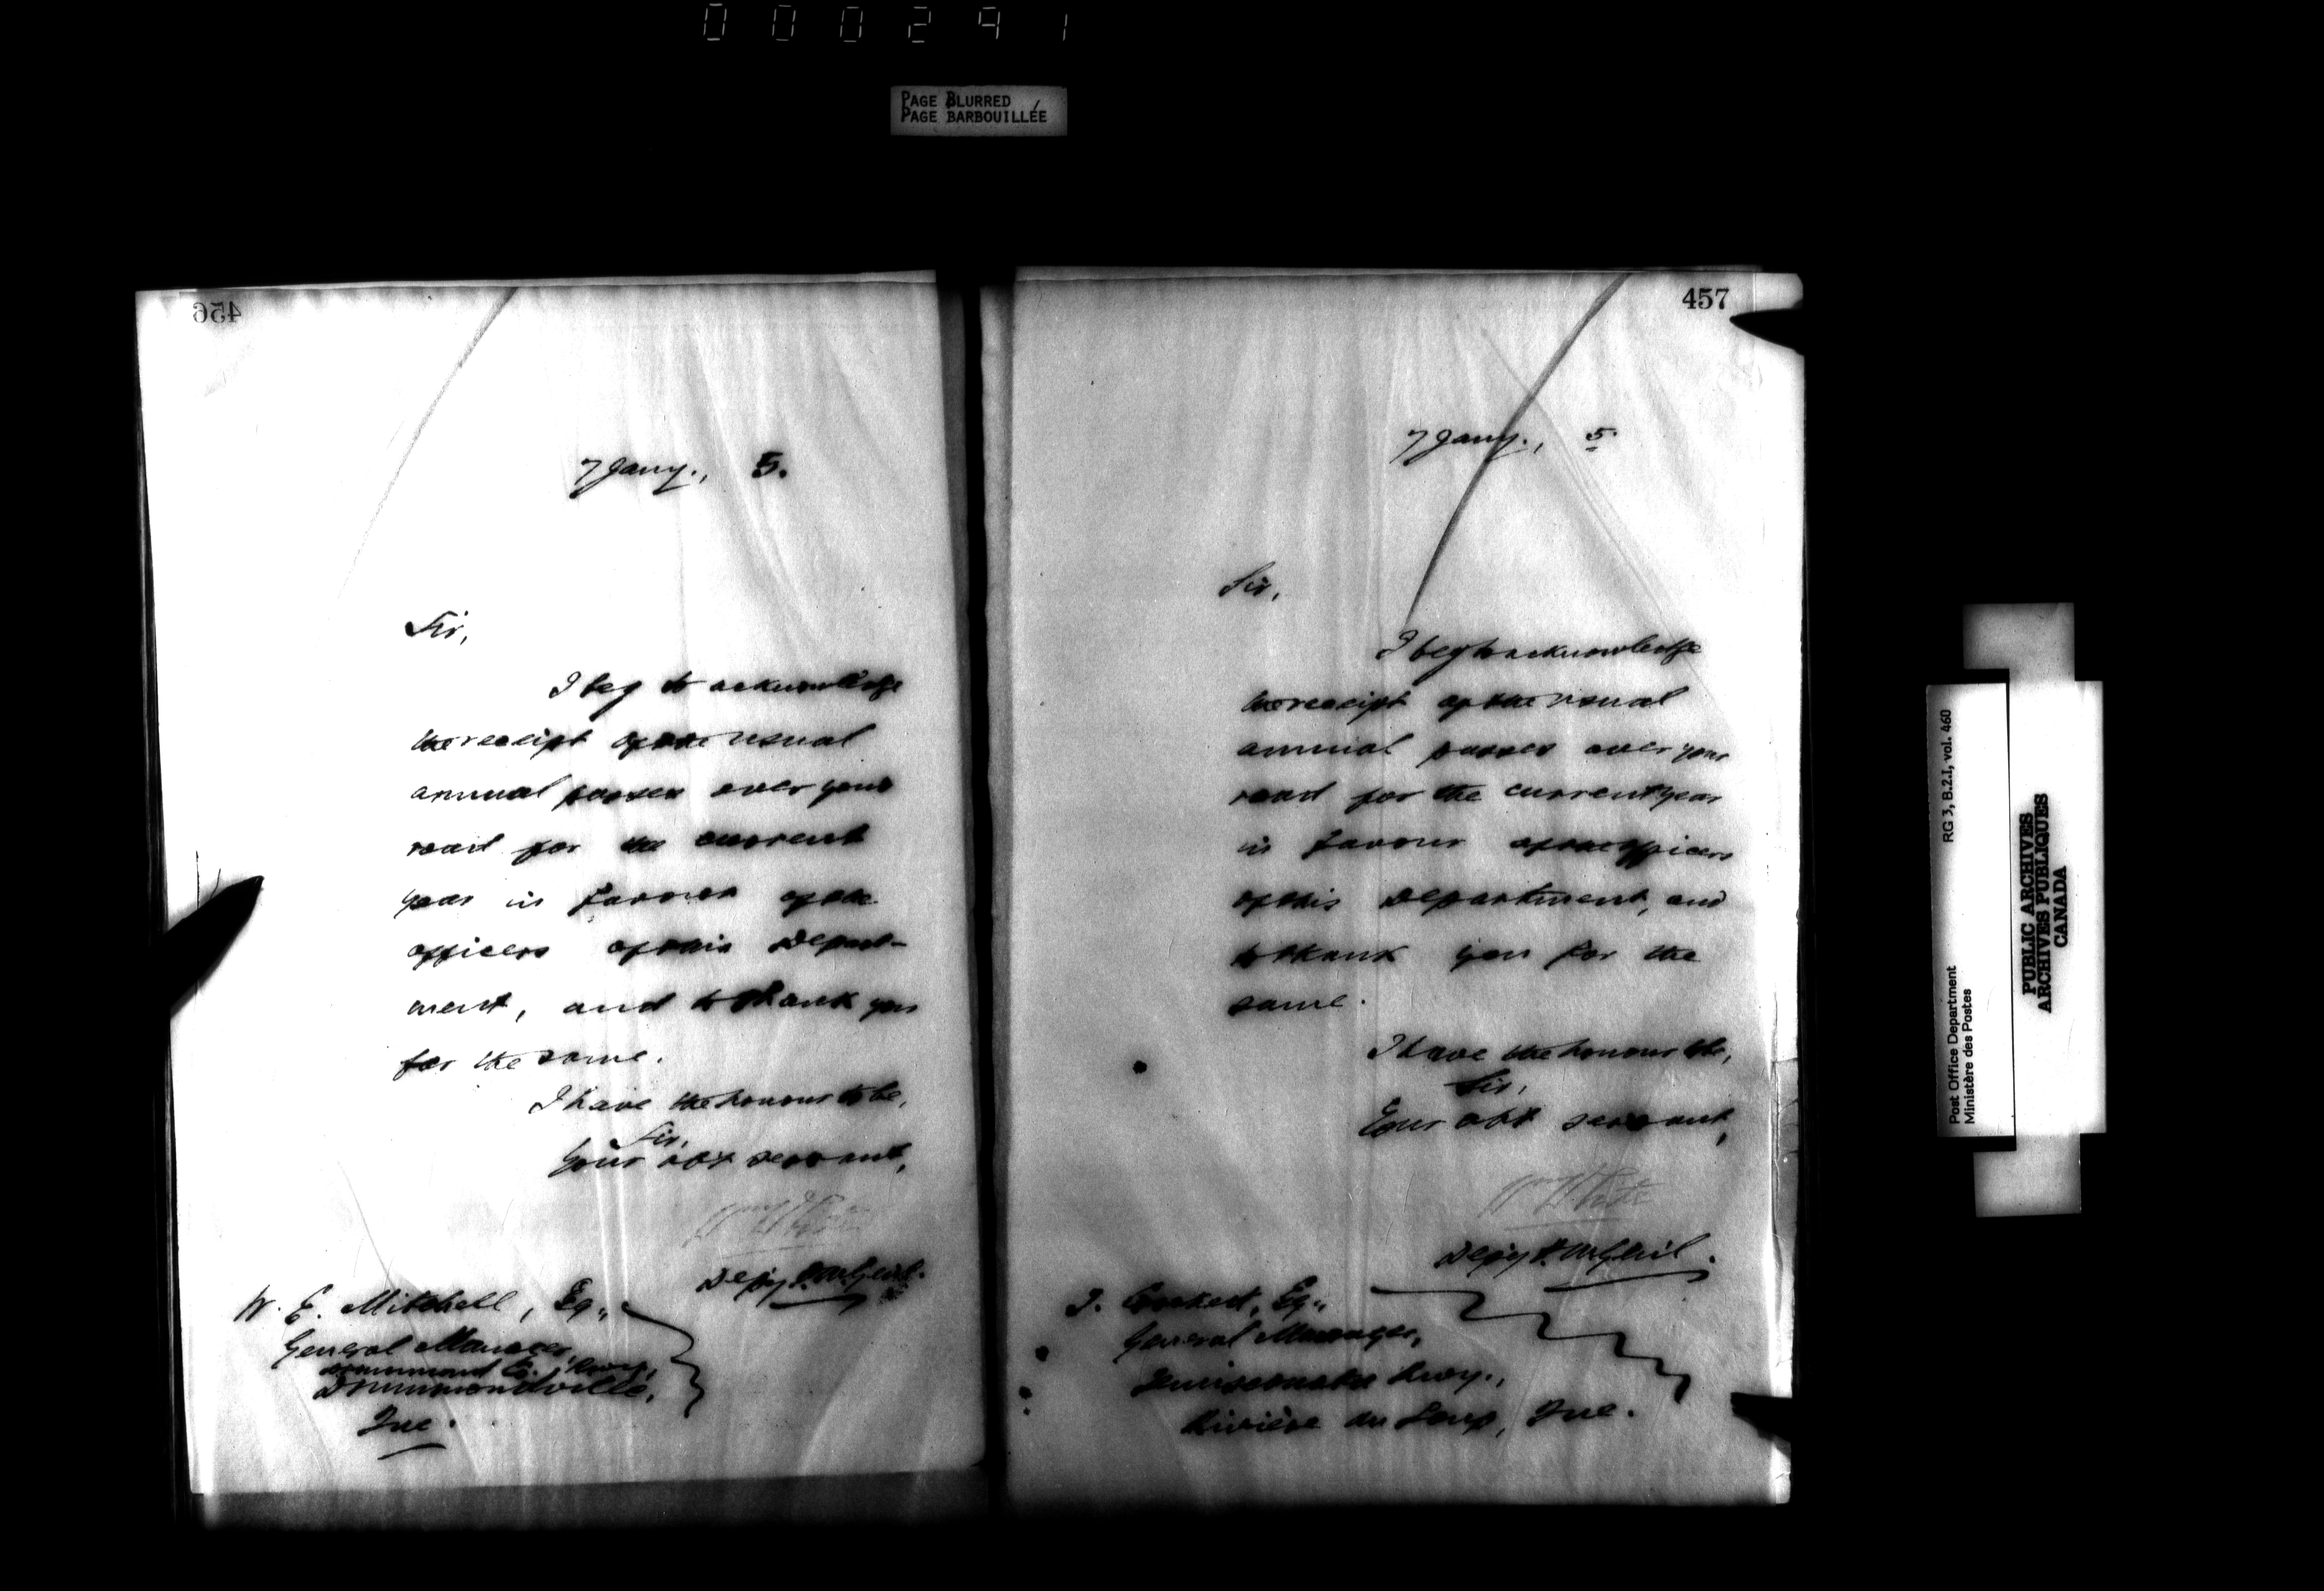 000291
PAGE BLURRED
PAGE BARBOUILLÉE
456
7 Jany., 5.
Sir,
I beg to acknowledge
the receipt of the usual
annual passes over your
road for the current
year in favour of the
officers of this Depart-
ment, and to thank you
for the same.
I have the honour to be,
Sir,
Your obt servant,
Wm White
Depy P.M. Genl.
W. E. Mitchell, Eq.,
General Manager,
Drummond Co. Rway,
Drummondville,
Que.
457
7 Jany., 5
Sir,
I beg to acknowledge
the receipt of the usual
annual passes over your
road for the current year
in favour of the officers
of this Department, and
to thank you for the
same.
I have the honour to be,
Sir,
Your obt servant,
Wm White
Depy P.M. Genl.
Eq.,
General Manager,
Temiscouata Rwy.,
Rivière du Loup, Que.
Post Office Department
Ministère des Postes
RG 3, B.2.I, vol. 460
PUBLIC ARCHIVES
ARCHIVES PUBLIQUES
CANADA